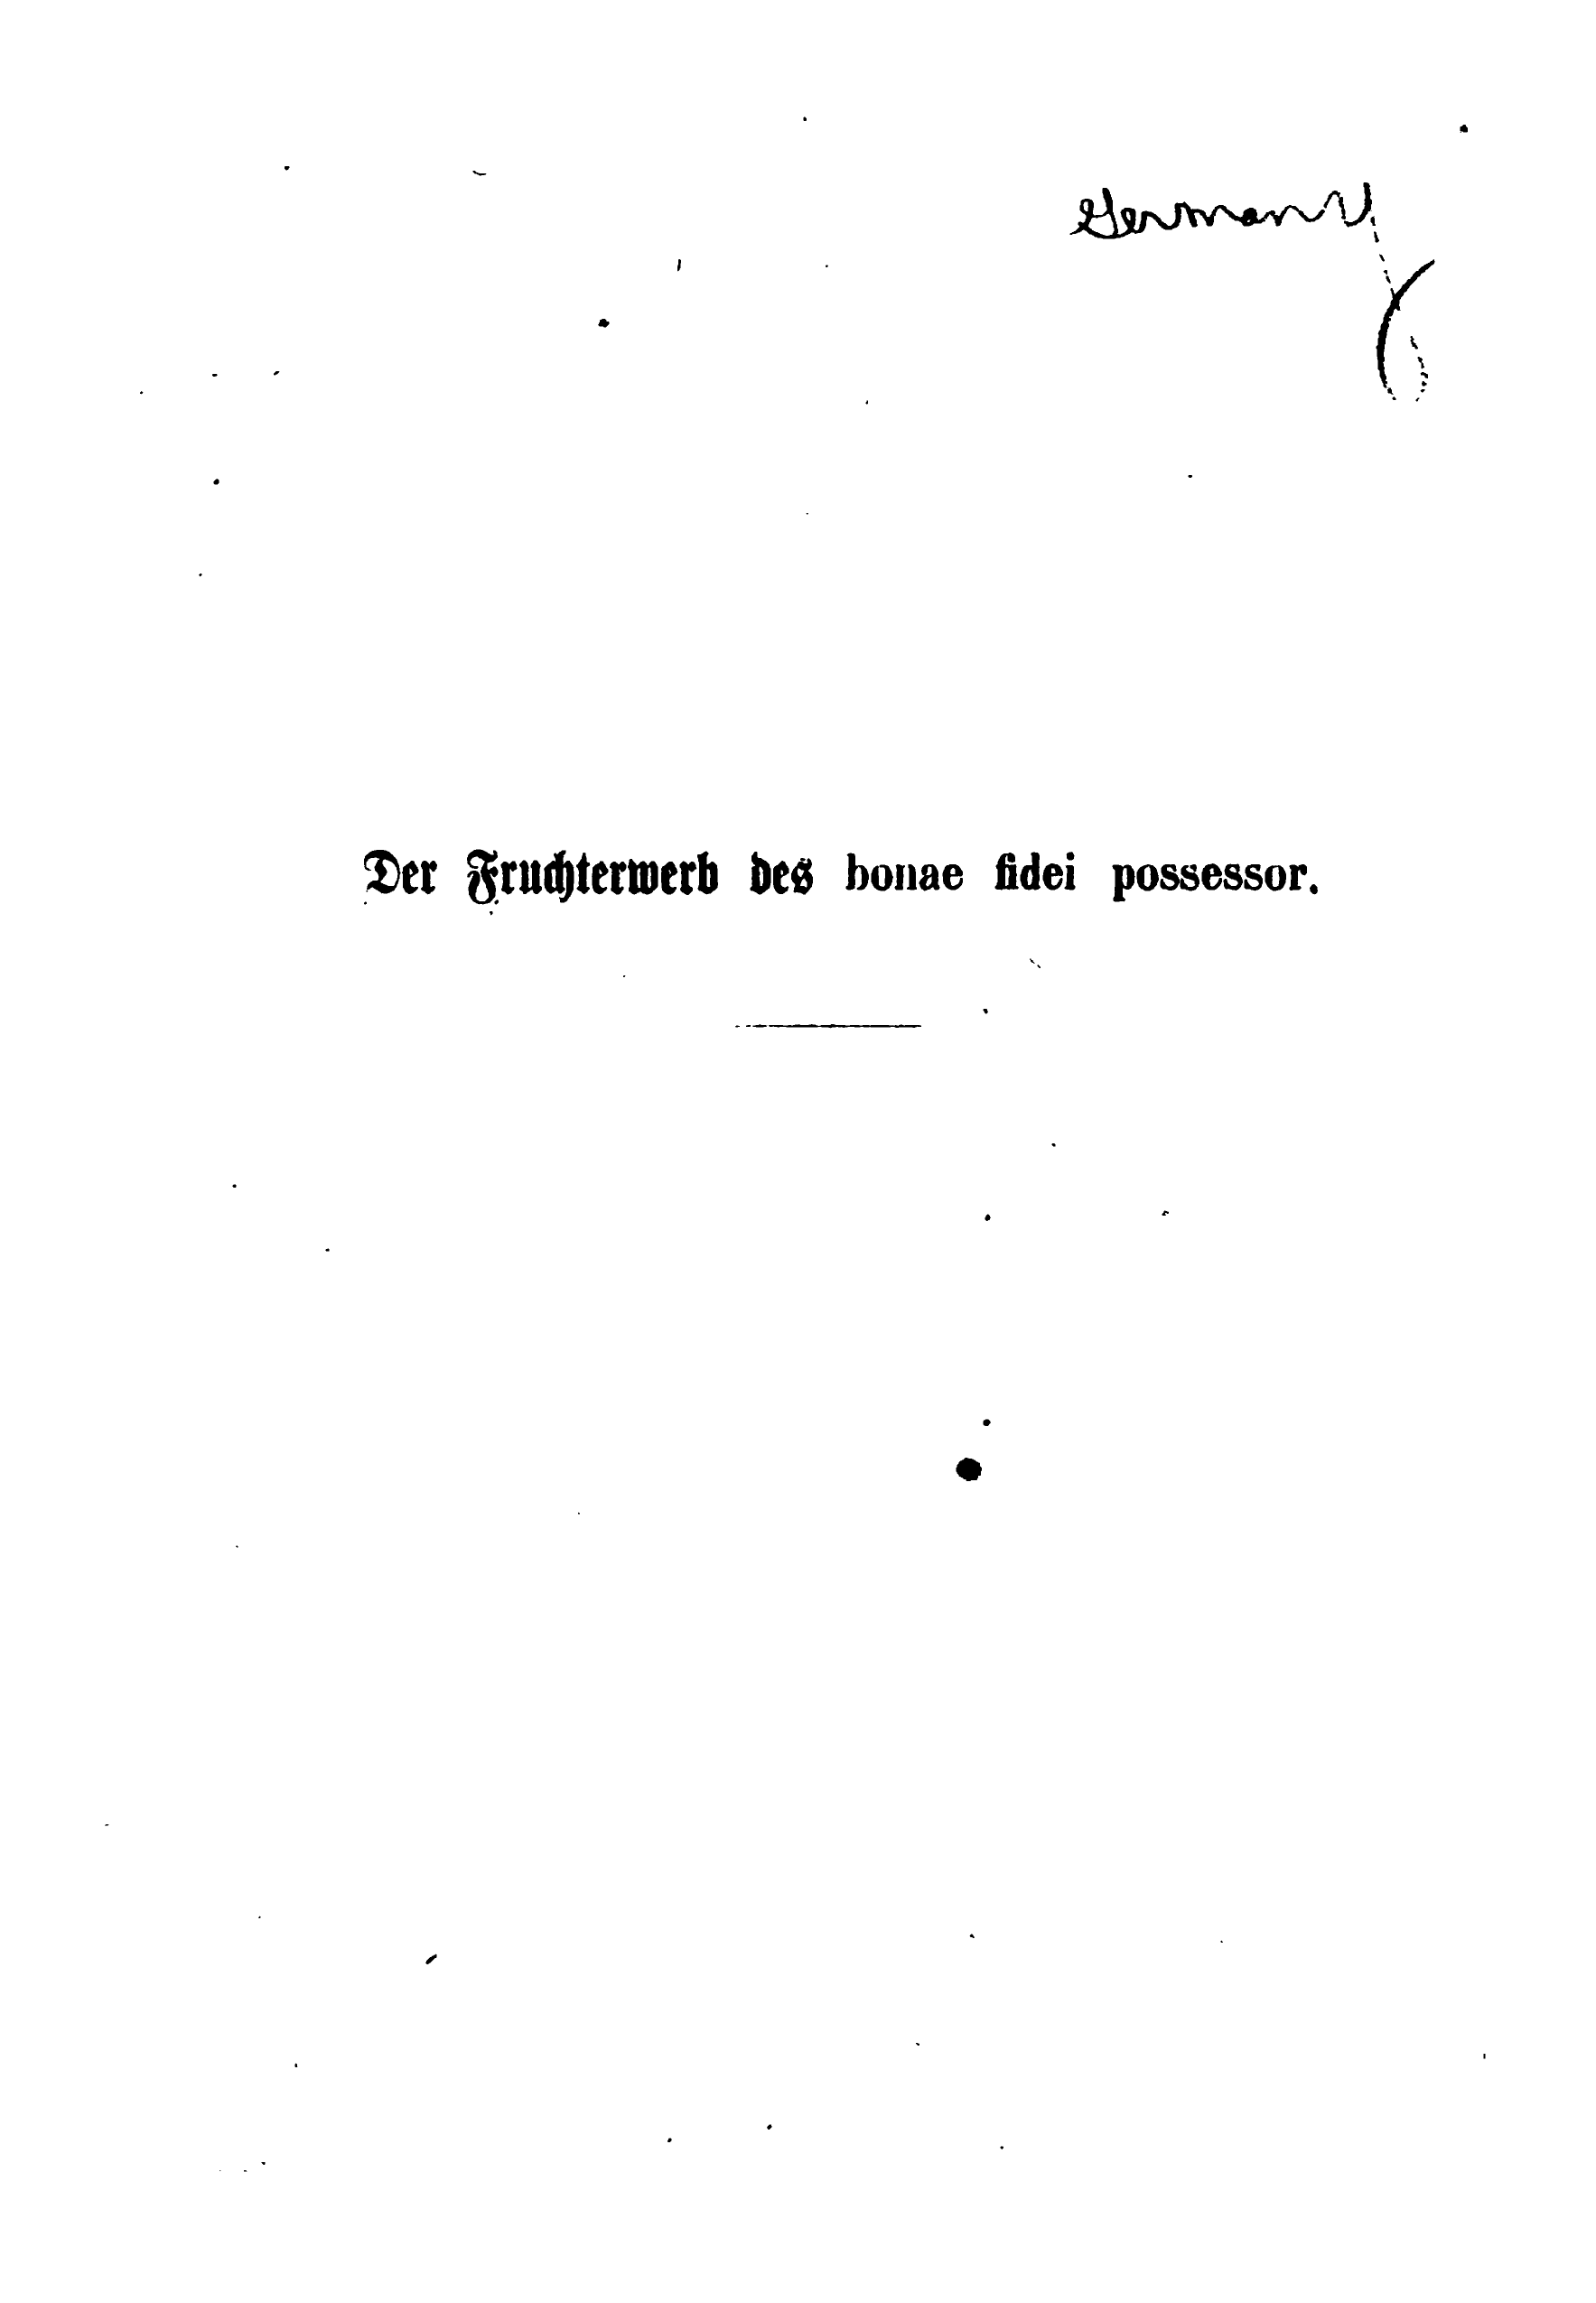 Germany
Der Fruchterwerb des bonae fidei possessor.